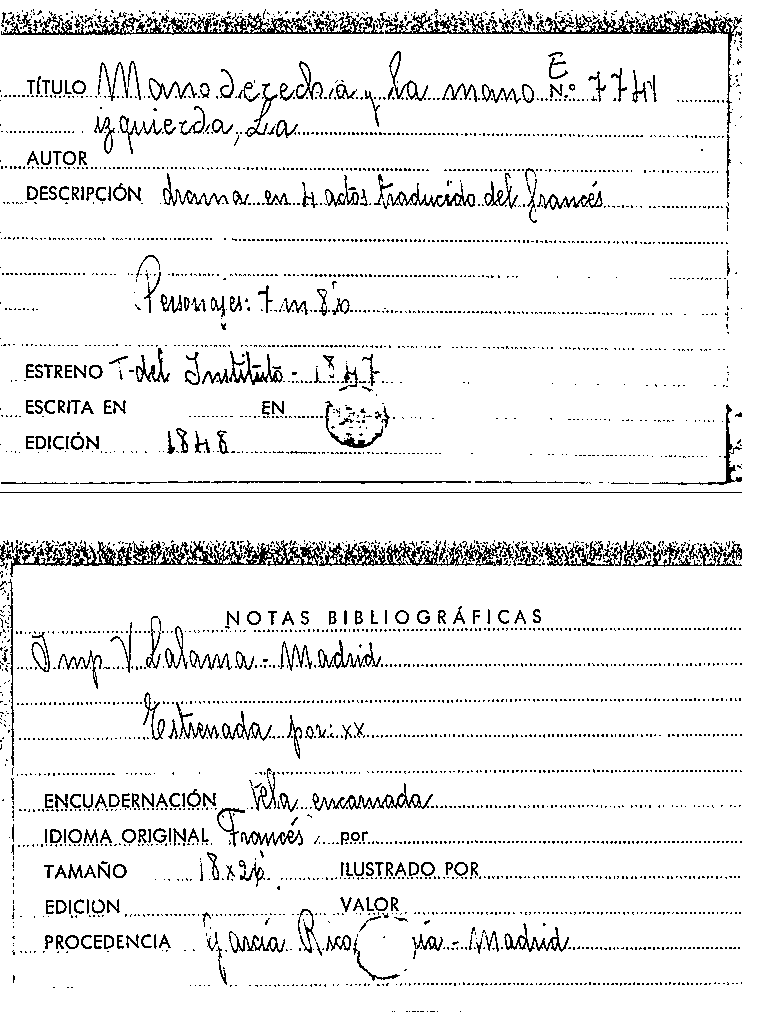 E
TÍTULO Mano derecha y la mano N.º 7741
izquierda, La
AUTOR
DESCRIPCIÓN drama en 4 actos traducido del francés
Personajes: 7 m 8
ESTRENO T. del Instituto - 1847
ESCRITA EN EN
EDICIÓN 1848
NOTAS BIBLIOGRÁFICAS
Imp V. Lalama - Madrid
Estrenada por: xx
ENCUADERNACIÓN tela encarnada
IDIOMA ORIGINAL Francés por
TAMAÑO 18x26 ILUSTRADO POR
EDICION VALOR
PROCEDENCIA García Rico - Madrid